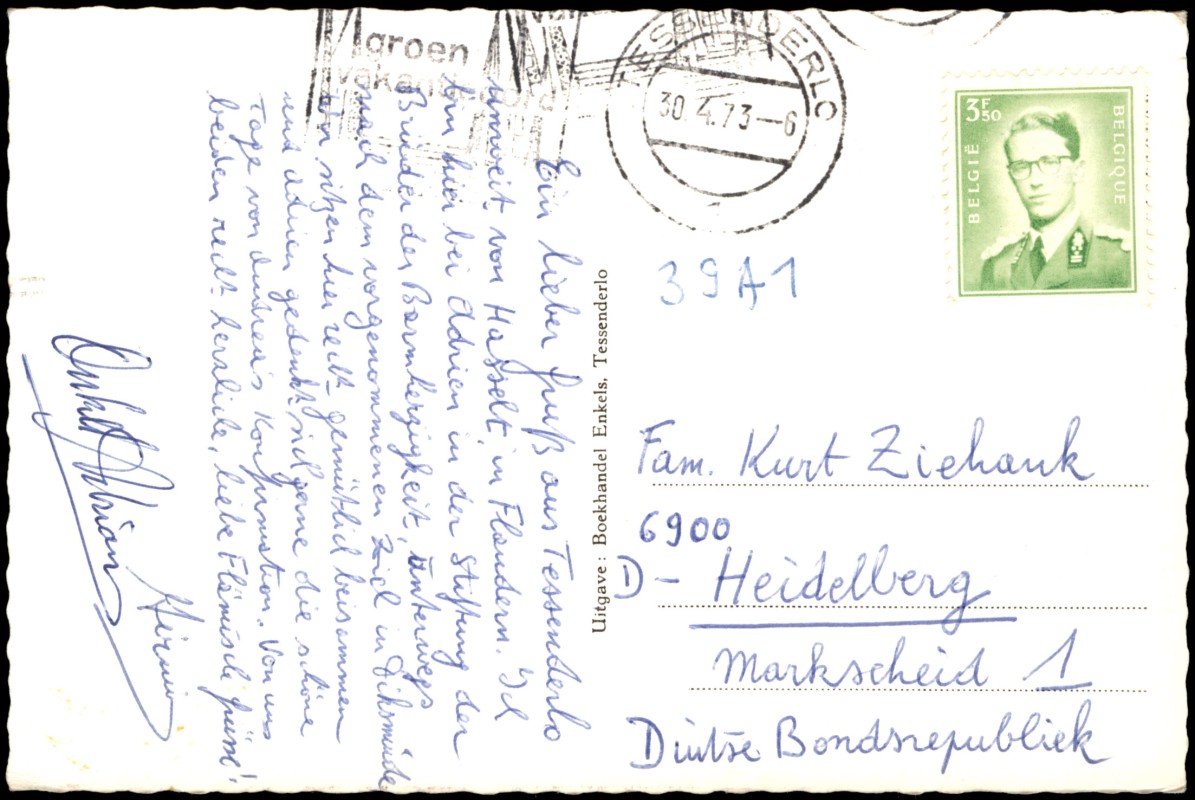 groen
vakantieoord
TESSENDERLO
30.4.73-6
3F50
BELGIË
BELGIQUE
39A1
Ein lieber Gruß aus Tessenderlo
unweit von Hasselt, in Flandern. Ich
bin hier bei Adrien in der Stiftung der
Brüder der Barmherzigkeit, unterwegs
nach dem vorgenommenen Ziel in Diksmüide
Wir sitzen hier recht gemütlich beisammen
und Adrien gedenkt sich gerne die schöne
Tage von Andrea's Konfirmation. Von uns
beiden recht herzliche, liebe Flämische Grüsse!
Onkel Adrian
Uitgave: Boekhandel Enkels, Tessenderlo
Fam. Kurt Ziehank
6900
D- Heidelberg
Markscheid 1
Duitse Bondsrepubliek